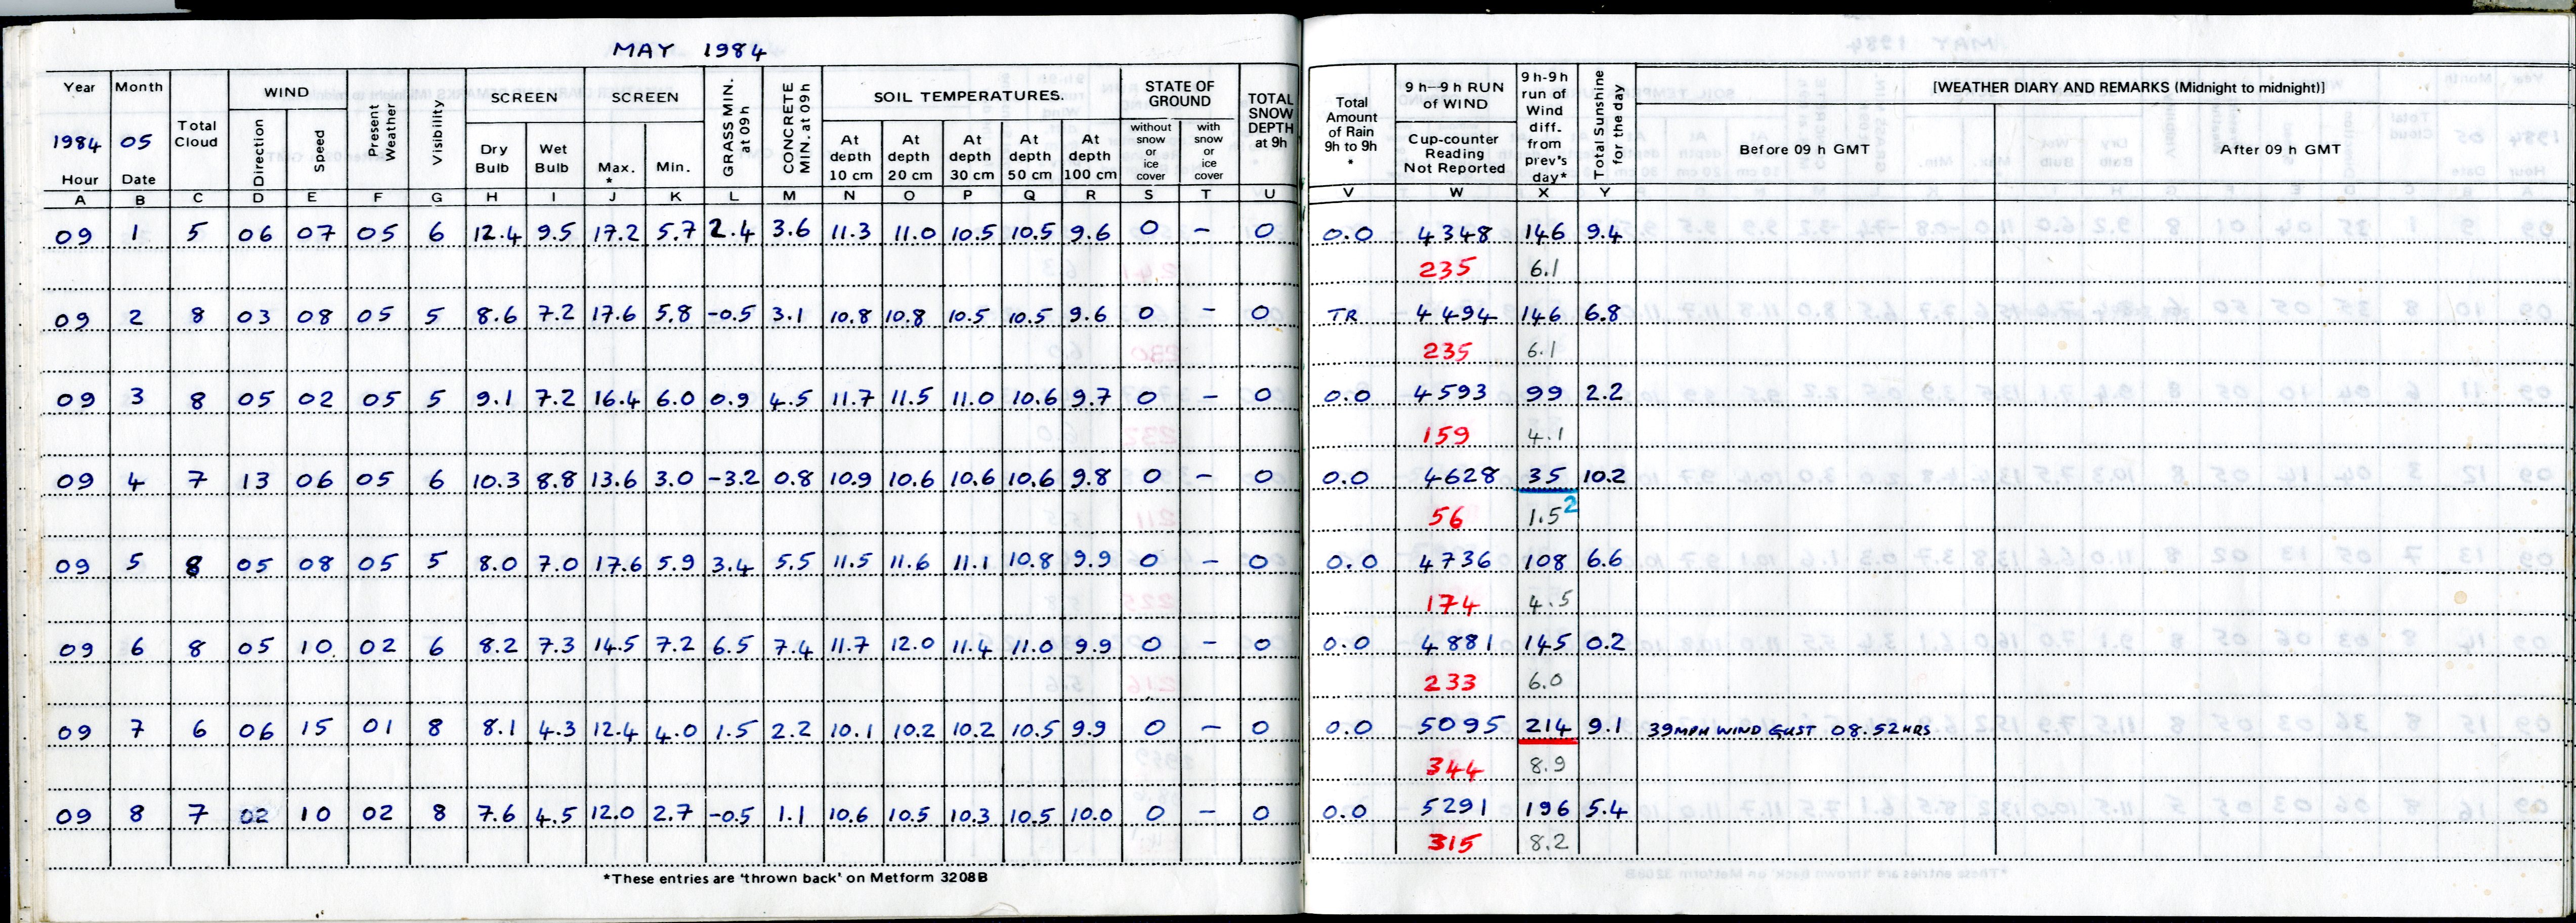 MAY 1984
Year Month WIND SCREEN SCREEN SOIL TEMPERATURES. STATE OF GROUND TOTAL SNOW DEPTH at 9h Total Amount of Rain 9h to 9h * 9h-9h RUN of WIND 9h-9h run of Wind diff. from prev's day* Total Sunshine for the day [WEATHER DIARY AND REMARKS (Midnight to midnight)]
1984 05 Total Cloud Direction Speed Present Weather Visibility Dry Bulb Wet Bulb Max. * Min. GRASS MIN. at 09h CONCRETE MIN. at 09h At depth 10 cm At depth 20 cm At depth 30 cm At depth 50 cm At depth 100 cm without snow or ice cover with snow or ice cover Cup-counter Reading Not Reported Before 09 h GMT After 09 h GMT
Hour Date
A B C D E F G H I J K L M N O P Q R S T U V W X Y
09 1 5 06 07 05 6 12.4 9.5 17.2 5.7 2.4 3.6 11.3 11.0 10.5 10.5 9.6 0 – 0 0.0 4348 146 9.4
235 6.1
09 2 8 03 08 05 5 8.6 7.2 17.6 5.8 -0.5 3.1 10.8 10.8 10.5 10.5 9.6 0 – 0 TR 4494 146 6.8
235 6.1
09 3 8 05 02 05 5 9.1 7.2 16.4 6.0 0.9 4.5 11.7 11.5 11.0 10.6 9.7 0 – 0 0.0 4593 99 2.2
159 4.1
09 4 7 13 06 05 6 10.3 8.8 13.6 3.0 -3.2 0.8 10.9 10.6 10.6 10.6 9.8 0 – 0 0.0 4628 35 10.2
56 1.5 2
09 5 8 05 08 05 5 8.0 7.0 17.6 5.9 3.4 5.5 11.5 11.6 11.1 10.8 9.9 0 – 0 0.0 4736 108 6.6
174 4.5
09 6 8 05 10 02 6 8.2 7.3 14.5 7.2 6.5 7.4 11.7 12.0 11.4 11.0 9.9 0 – 0 0.0 4881 145 0.2
233 6.0
09 7 6 06 15 01 8 8.1 4.3 12.4 4.0 1.5 2.2 10.1 10.2 10.2 10.5 9.9 0 – 0 0.0 5095 214 9.1 39MPH WIND GUST 08.52HRS
344 8.9
09 8 7 02 10 02 8 7.6 4.5 12.0 2.7 -0.5 1.1 10.6 10.5 10.3 10.5 10.0 0 – 0 0.0 5291 196 5.4
315 8.2
*These entries are 'thrown back' on Metform 3208B